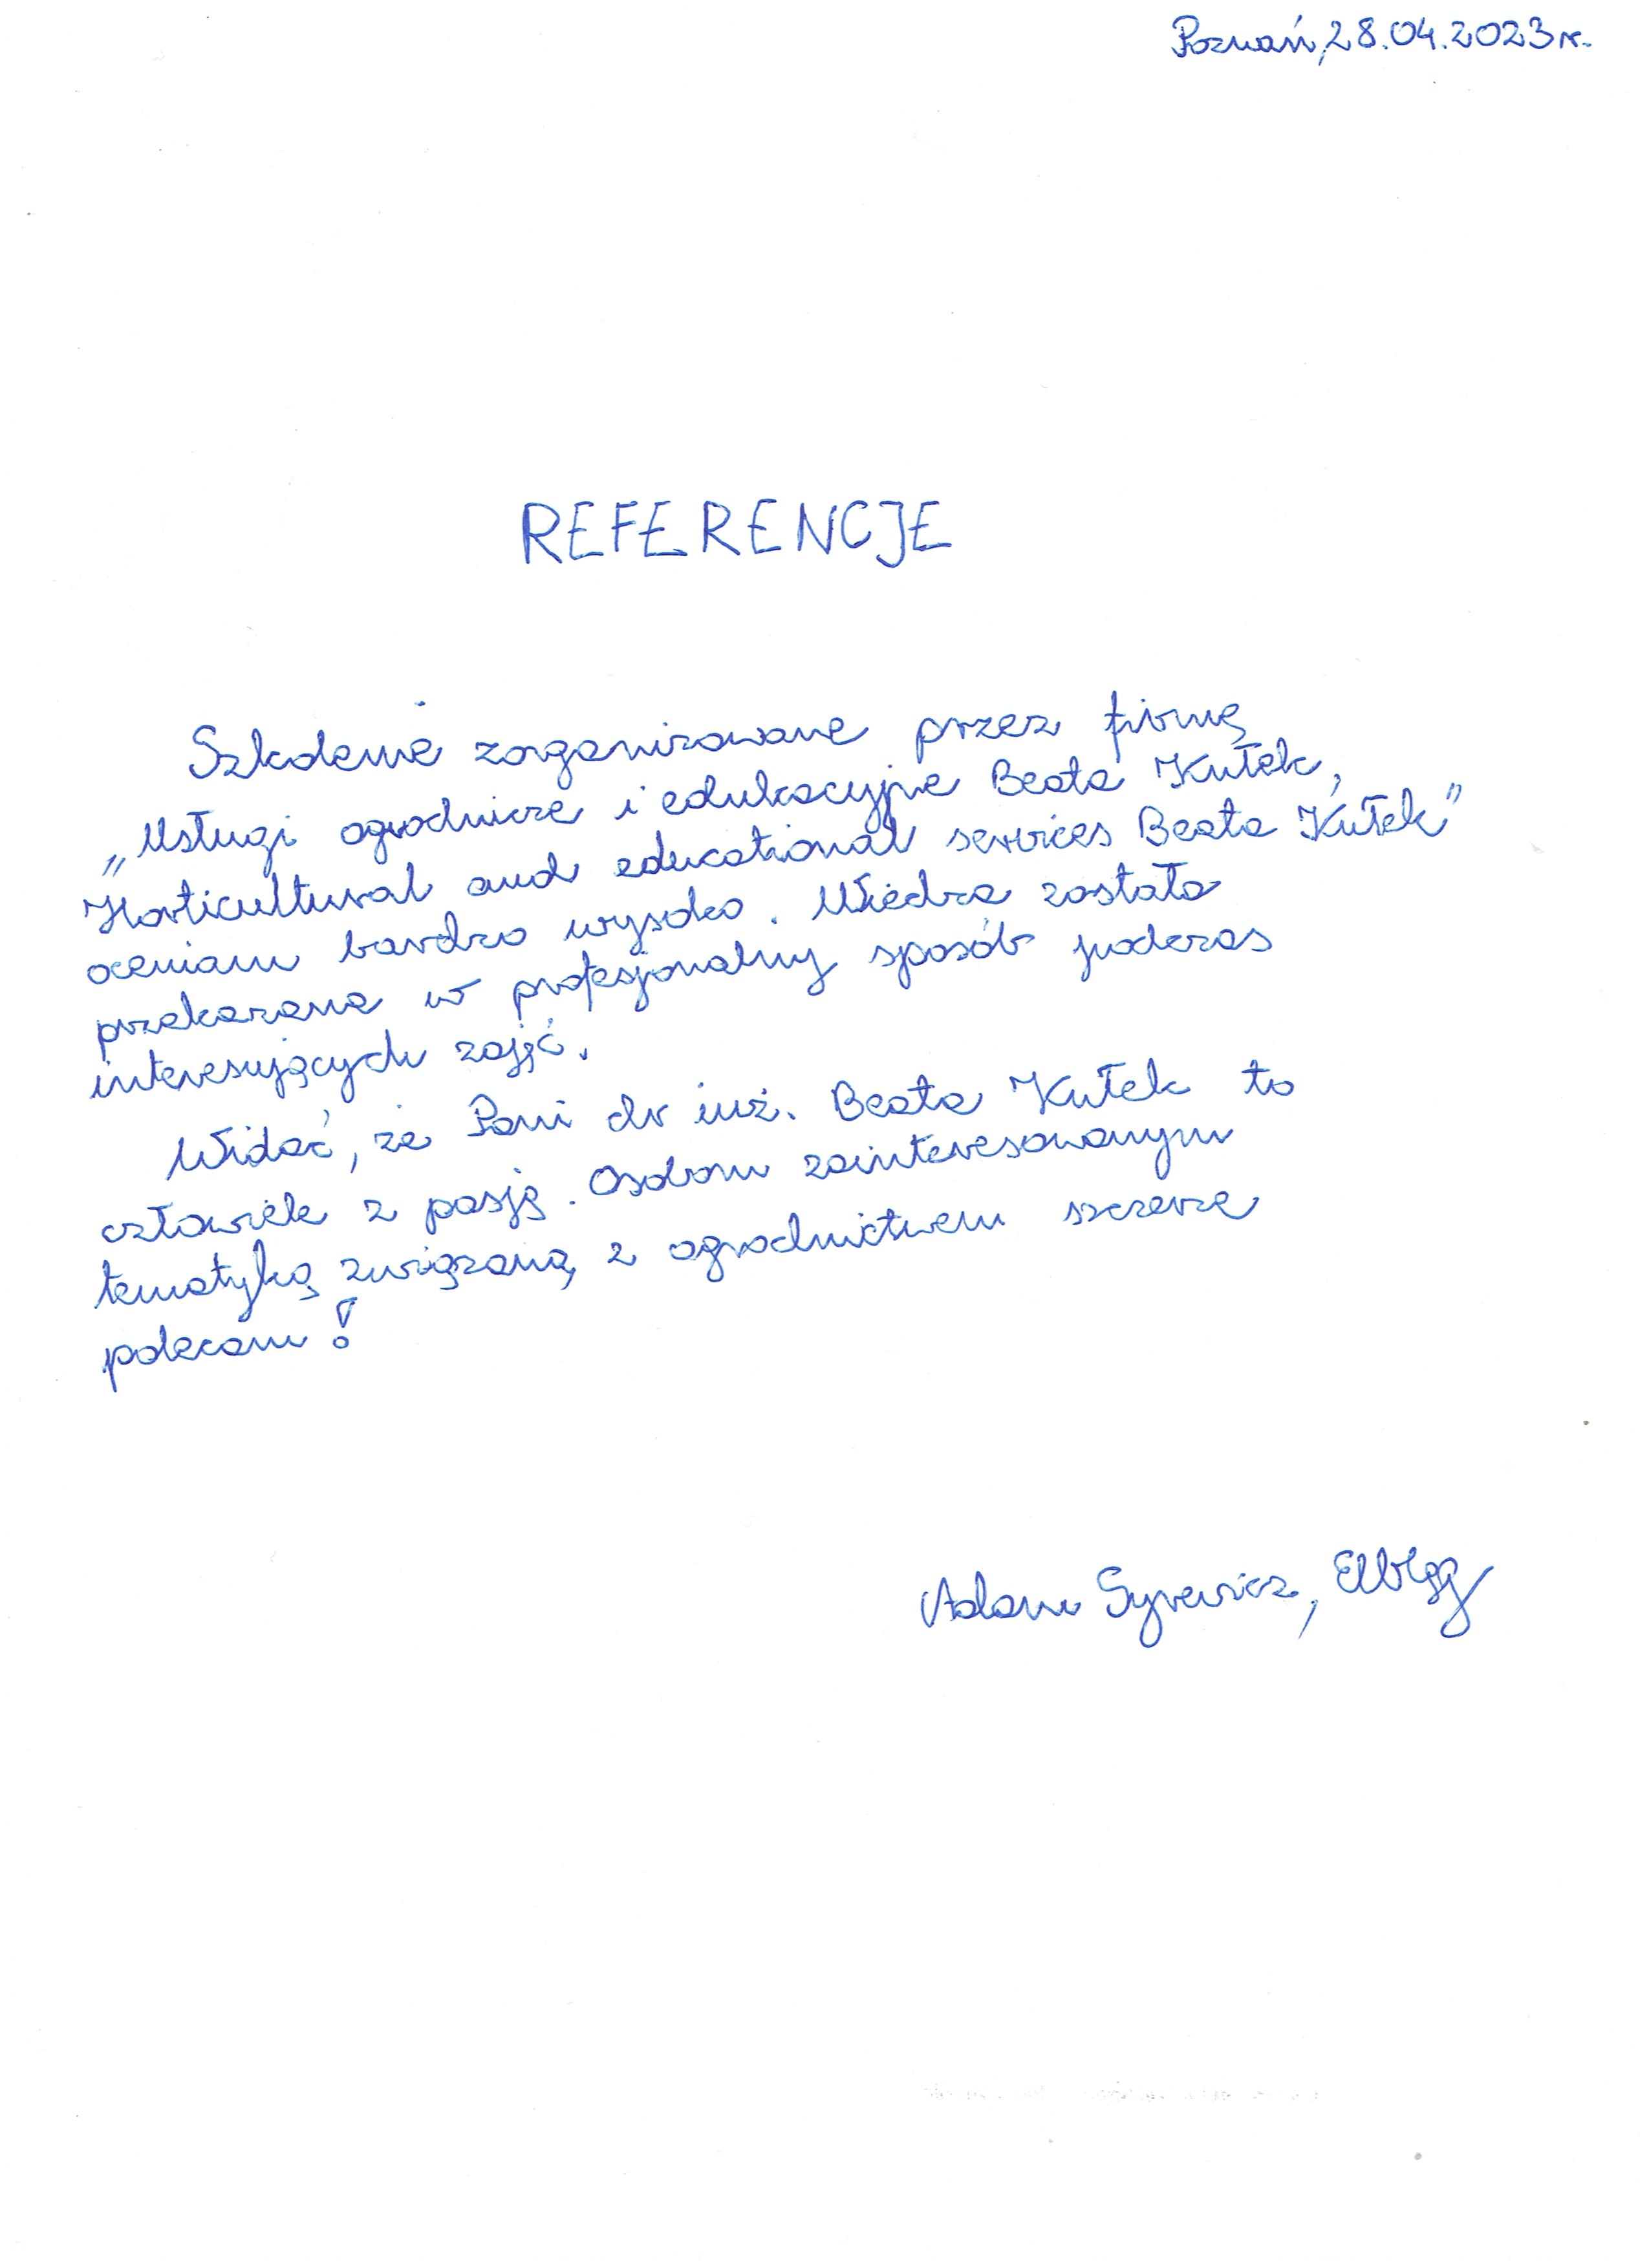 Poznań, 28.04.2023 r.
REFERENCJE
Szkolenie zorganizowane przez firmę
„Usługi ogrodnicze i edukacyjne Beata Kułek,
Horticultural and educational services Beata Kułek”
oceniam bardzo wysoko. Wiedza została
przekazana w profesjonalny sposób podczas
interesujących zajęć.
Widać, że Pani dr inż. Beata Kułek to
człowiek z pasją. Osobom zainteresowanym
tematyką związaną z ogrodnictwem szczerze
polecam!
Adam Syrewicz, Elbląg